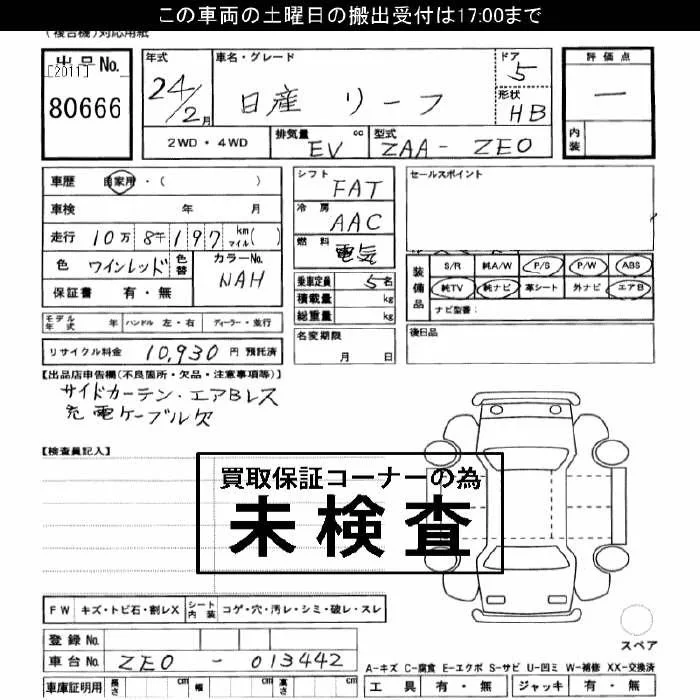 この車両の土曜日の搬出受付は17:00まで
(複合機)対応用紙
出品No.
[2011]
80666
年式
24/2月
車名・グレード
日産 リーフ
ドア
5
形状
HB
評価点
—
2WD・4WD
排気量 cc
EV
型式
ZAA-ZE0
内装
車歴 自家用・( )
車検 年 月
走行 10万8千197 km マイル( )
色 ワインレッド 色替
カラーNo.
NAH
保証書 有・無
シフト
FAT
冷房
AAC
燃料
電気
乗車定員 5名
積載量 kg
総重量 kg
名変期限
月 日
セールスポイント
装備品
S/R 純A/W P/S P/W ABS
純TV 純ナビ 革シート 外ナビ エアB
ナビ型番:
後日品
モデル年式 年 ハンドル 左・右 ディーラー・並行
リサイクル料金 10,930 円 預託済
【出品店申告欄(不良箇所・欠品・注意事項等)】
サイドカーテン・エアBレス
充電ケーブル欠
【検査員記入】
買取保証コーナーの為
未検査
FW キズ・トビ石・割レX シート内装 コゲ・穴・汚レ・シミ・破レ・スレ
登録No.
車台No. ZE0-013442
車庫証明用 長さ cm 幅 cm 高さ cm
スペア
A-キズ C-腐食 E-エクボ S-サビ U-凹ミ W-補修 XX-交換済
工具 有・無 ジャッキ 有・無